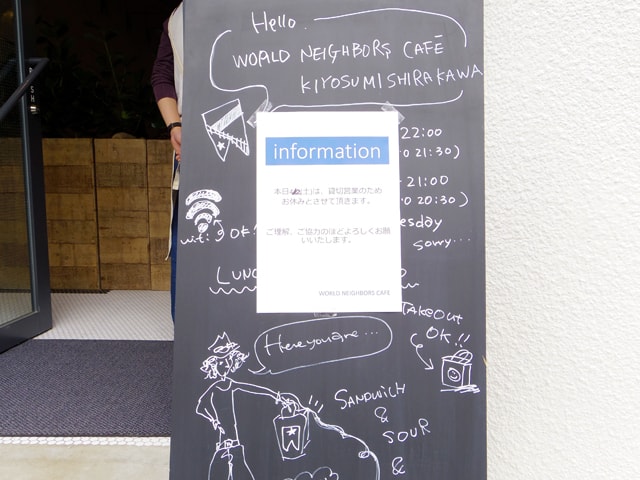 Hello.
WORLD NEIGHBORS CAFE
KIYOSUMISHIRAKAWA
22:00
21:30)
information
本日(土)は、貸切営業のため
お休みとさせて頂きます。
21:00
20:30)
esday
sorry...
ご理解、ご協力のほどよろしくお願
いいたします。
WORLD NEIGHBORS CAFE
wifi OK!
LUNC
TAKEOUT
OK!!
Here you are...
SANDWICH
&
SOUR
&